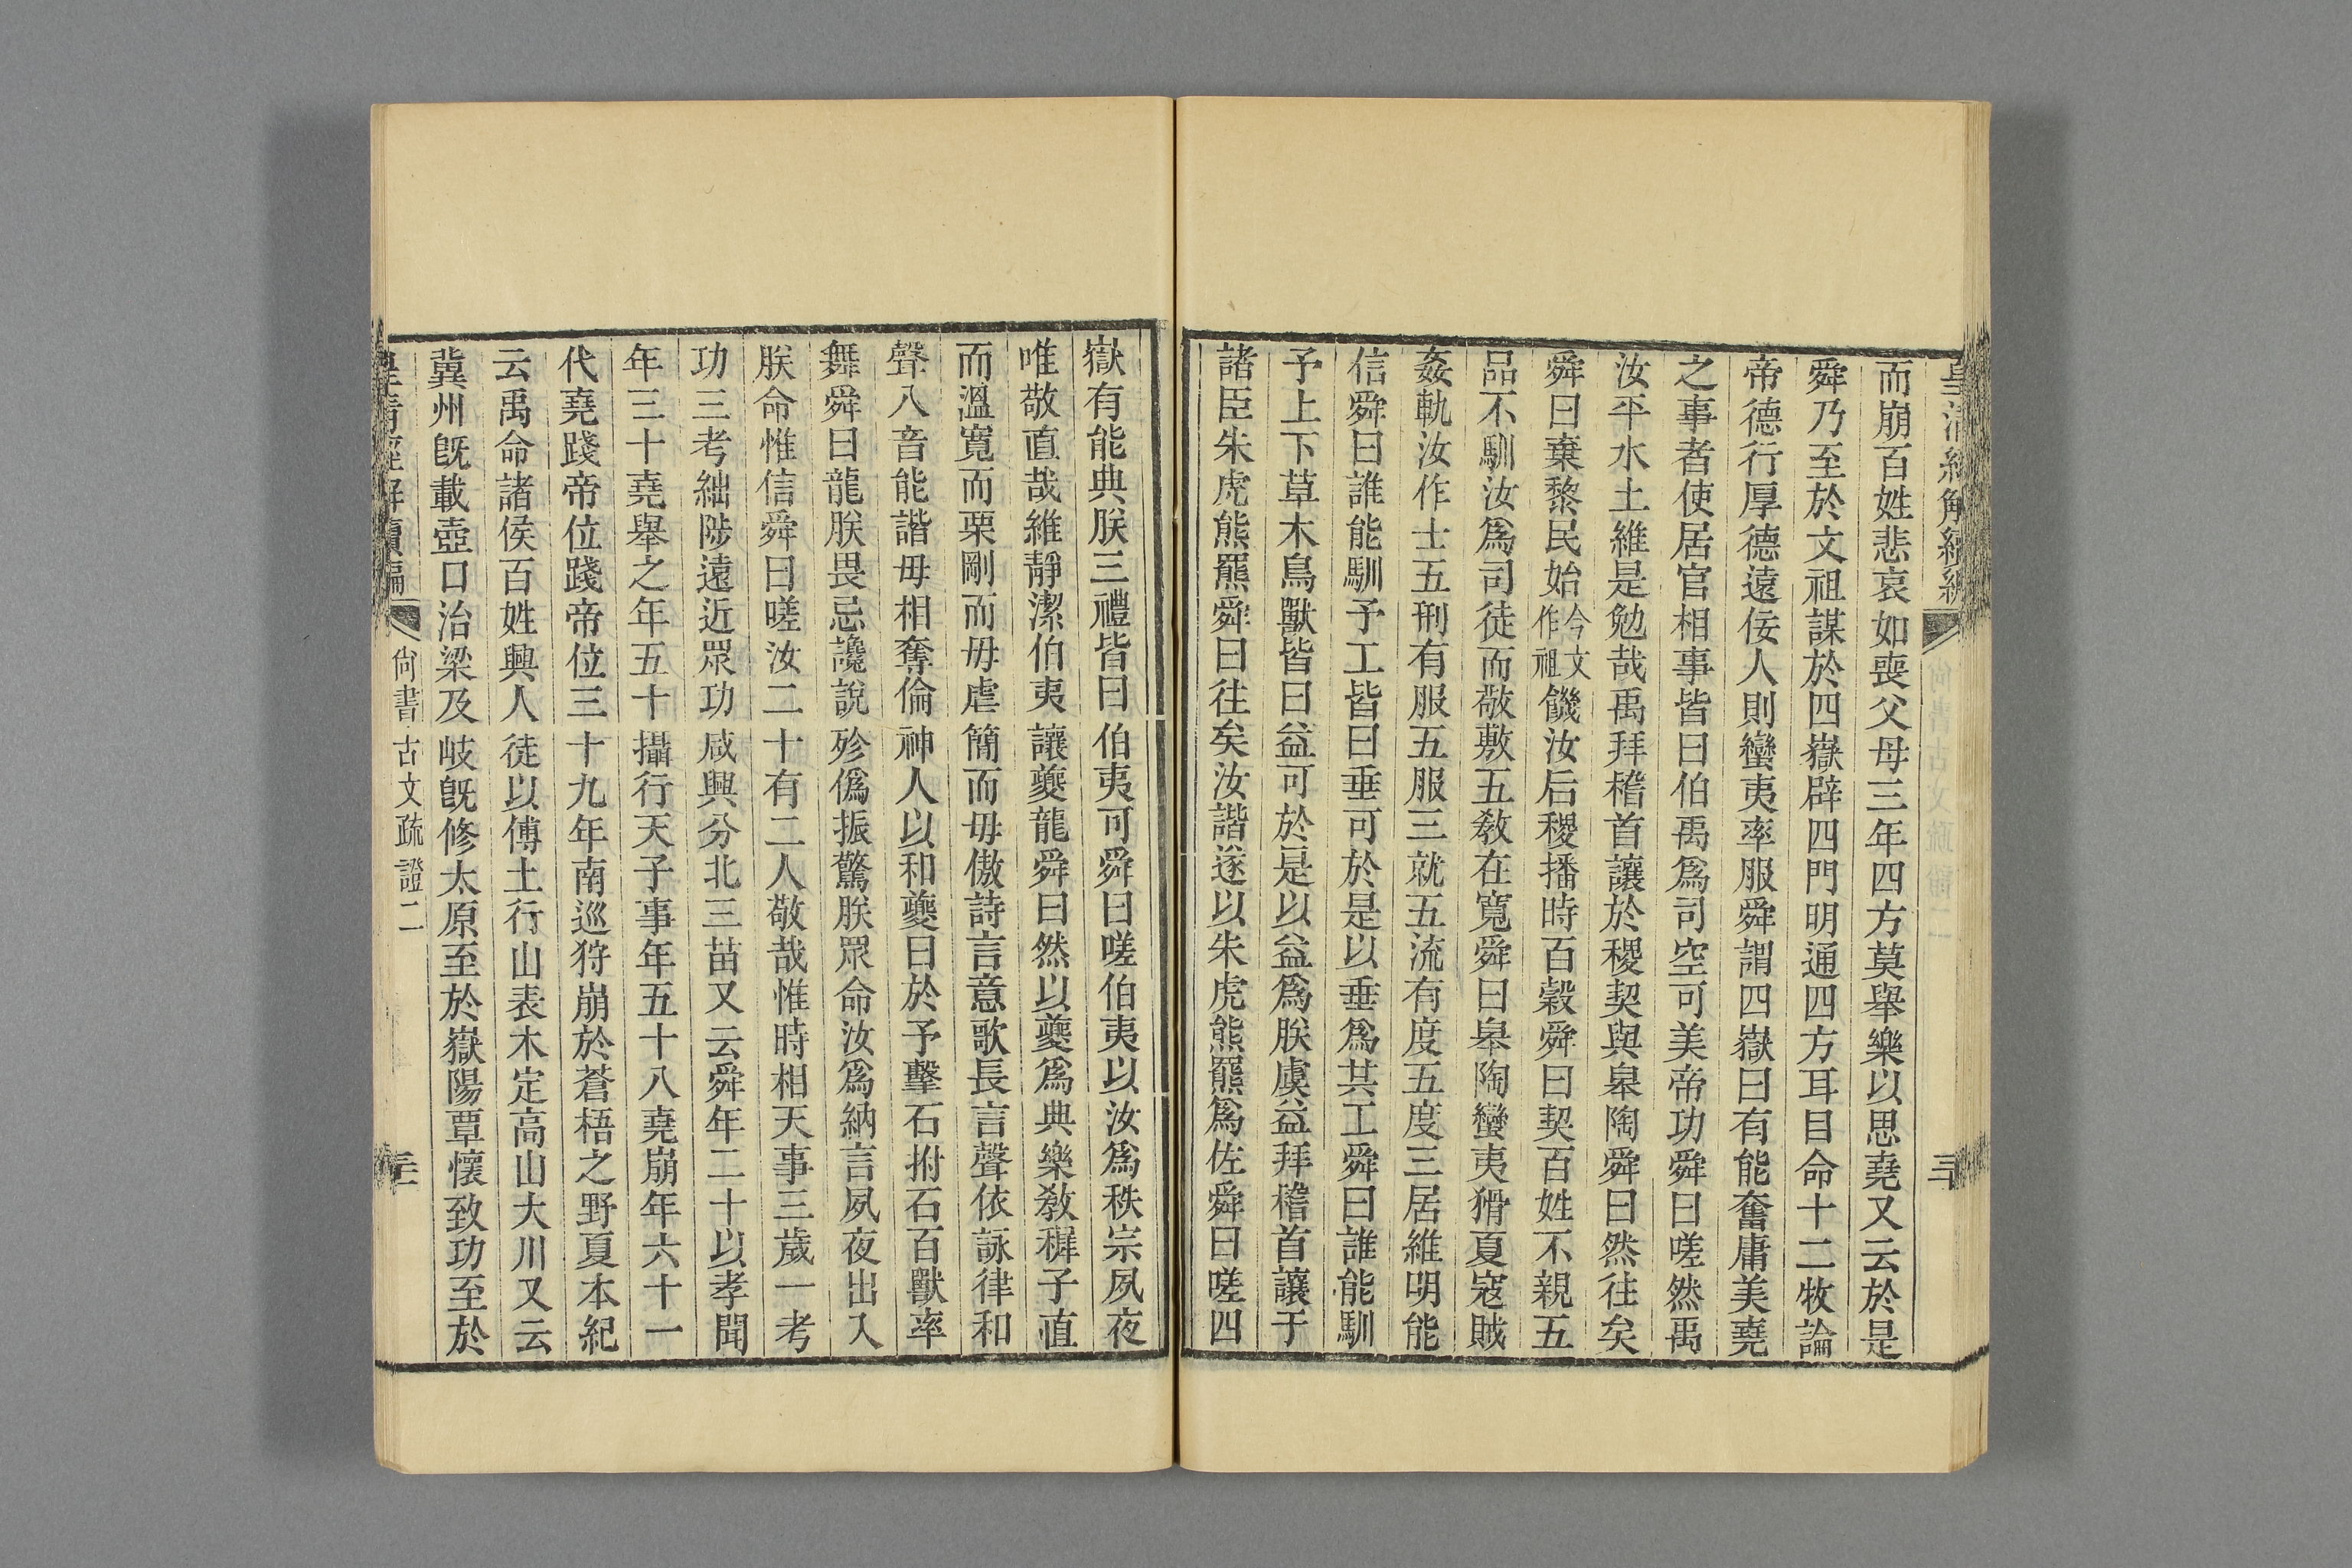 皇清經解續編
三
而崩百姓悲哀如喪父母三年四方莫舉樂以思堯又云於是
舜乃至於文祖謀於四嶽辟四門明通四方耳目命十二牧論
帝德行厚德遠佞人則蠻夷率服舜謂四嶽曰有能奮庸美堯
之事者使居官相事皆曰伯禹爲司空可美帝功舜曰嗟然禹
汝平水土維是勉哉禹拜稽首讓於稷契與皋陶舜曰然往矣
舜曰棄黎民始今文作祖饑汝后稷播時百穀舜曰契百姓不親五
品不馴汝爲司徒而敬敷五敎在寬舜曰皋陶蠻夷猾夏寇賊
姦軌汝作士五刑有服五服三就五流有度五度三居維明能
信舜曰誰能馴予工皆曰垂可於是以垂爲共工舜曰誰能馴
予上下草木鳥獸皆曰益可於是以益爲朕虞益拜稽首讓于
諸臣朱虎熊羆舜曰往矣汝諧遂以朱虎熊羆爲佐舜曰嗟四
嶽有能典朕三禮皆曰伯夷可舜曰嗟伯夷以汝爲秩宗夙夜
唯敬直哉維靜潔伯夷讓夔龍舜曰然以夔爲典樂敎穉子直
而溫寬而栗剛而毋虐簡而毋傲詩言意歌長言聲依詠律和
聲八音能諧毋相奪倫神人以和夔曰於予擊石拊石百獸率
舞舜曰龍朕畏忌讒說殄僞振驚朕眾命汝爲納言夙夜出入
朕命惟信舜曰嗟汝二十有二人敬哉惟時相天事三歲一考
功三考絀陟遠近眾功咸興分北三苗又云舜年二十以孝聞
年三十堯舉之年五十攝行天子事年五十八堯崩年六十一
代堯踐帝位踐帝位三十九年南巡狩崩於蒼梧之野夏本紀
云禹命諸侯百姓興人徒以傅土行山表木定高山大川又云
冀州旣載壺口治梁及岐旣修太原至於嶽陽覃懷致功至於
皇清經解續編
尙書古文疏證二